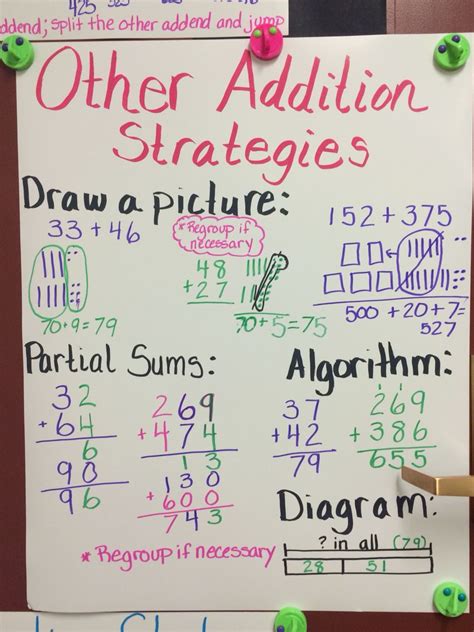 425
ddend; split the other addend and jump
Other Addition
Strategies
Draw a picture:
33 + 46
70+9=79
*Regroup if
necessary
48
+27
70+5=75
152 + 375
500 + 20 + 7 =
527
Partial Sums:
32
+64
6
90
96
269
+474
13
130
+600
743
*Regroup if necessary
Algorithm:
37
+42
79
1 1
269
+386
655
Diagram:
? in all (79)
28 51